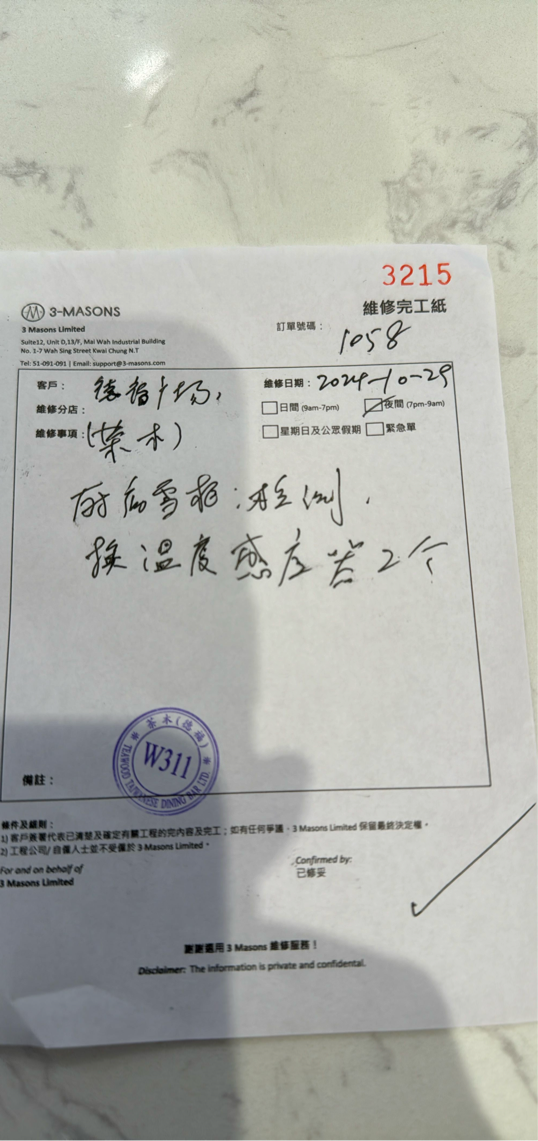 3215
3-MASONS
維修完工紙
3 Masons Limited
訂單號碼：
1058
Suite12, Unit D,13/F, Mai Wah Industrial Building
No. 1-7 Wah Sing Street Kwai Chung N.T
Tel: 51-091-091 | Email: support@3-masons.com
客戶： 德福广场,
維修日期： 2024-10-29
維修分店：
日間 (9am-7pm) 夜間 (7pm-9am)
維修事項： (茶木)
星期日及公眾假期 緊急單
厨房雪柜：检测，
换温度感应器2个
茶木(德福)
W311
TEAWOOD TAIWANESE DINING BAR LTD
備註：
條件及細則：
1) 客戶簽署代表已清楚及確定有關工程的完內容及完工；如有任何爭議，3 Masons Limited 保留最終決定權。
2) 工程公司/ 自僱人士並不受僱於 3 Masons Limited。
For and on behalf of
3 Masons Limited
Confirmed by:
已修妥
謝謝選用 3 Masons 維修服務！
Disclaimer: The information is private and confidental.